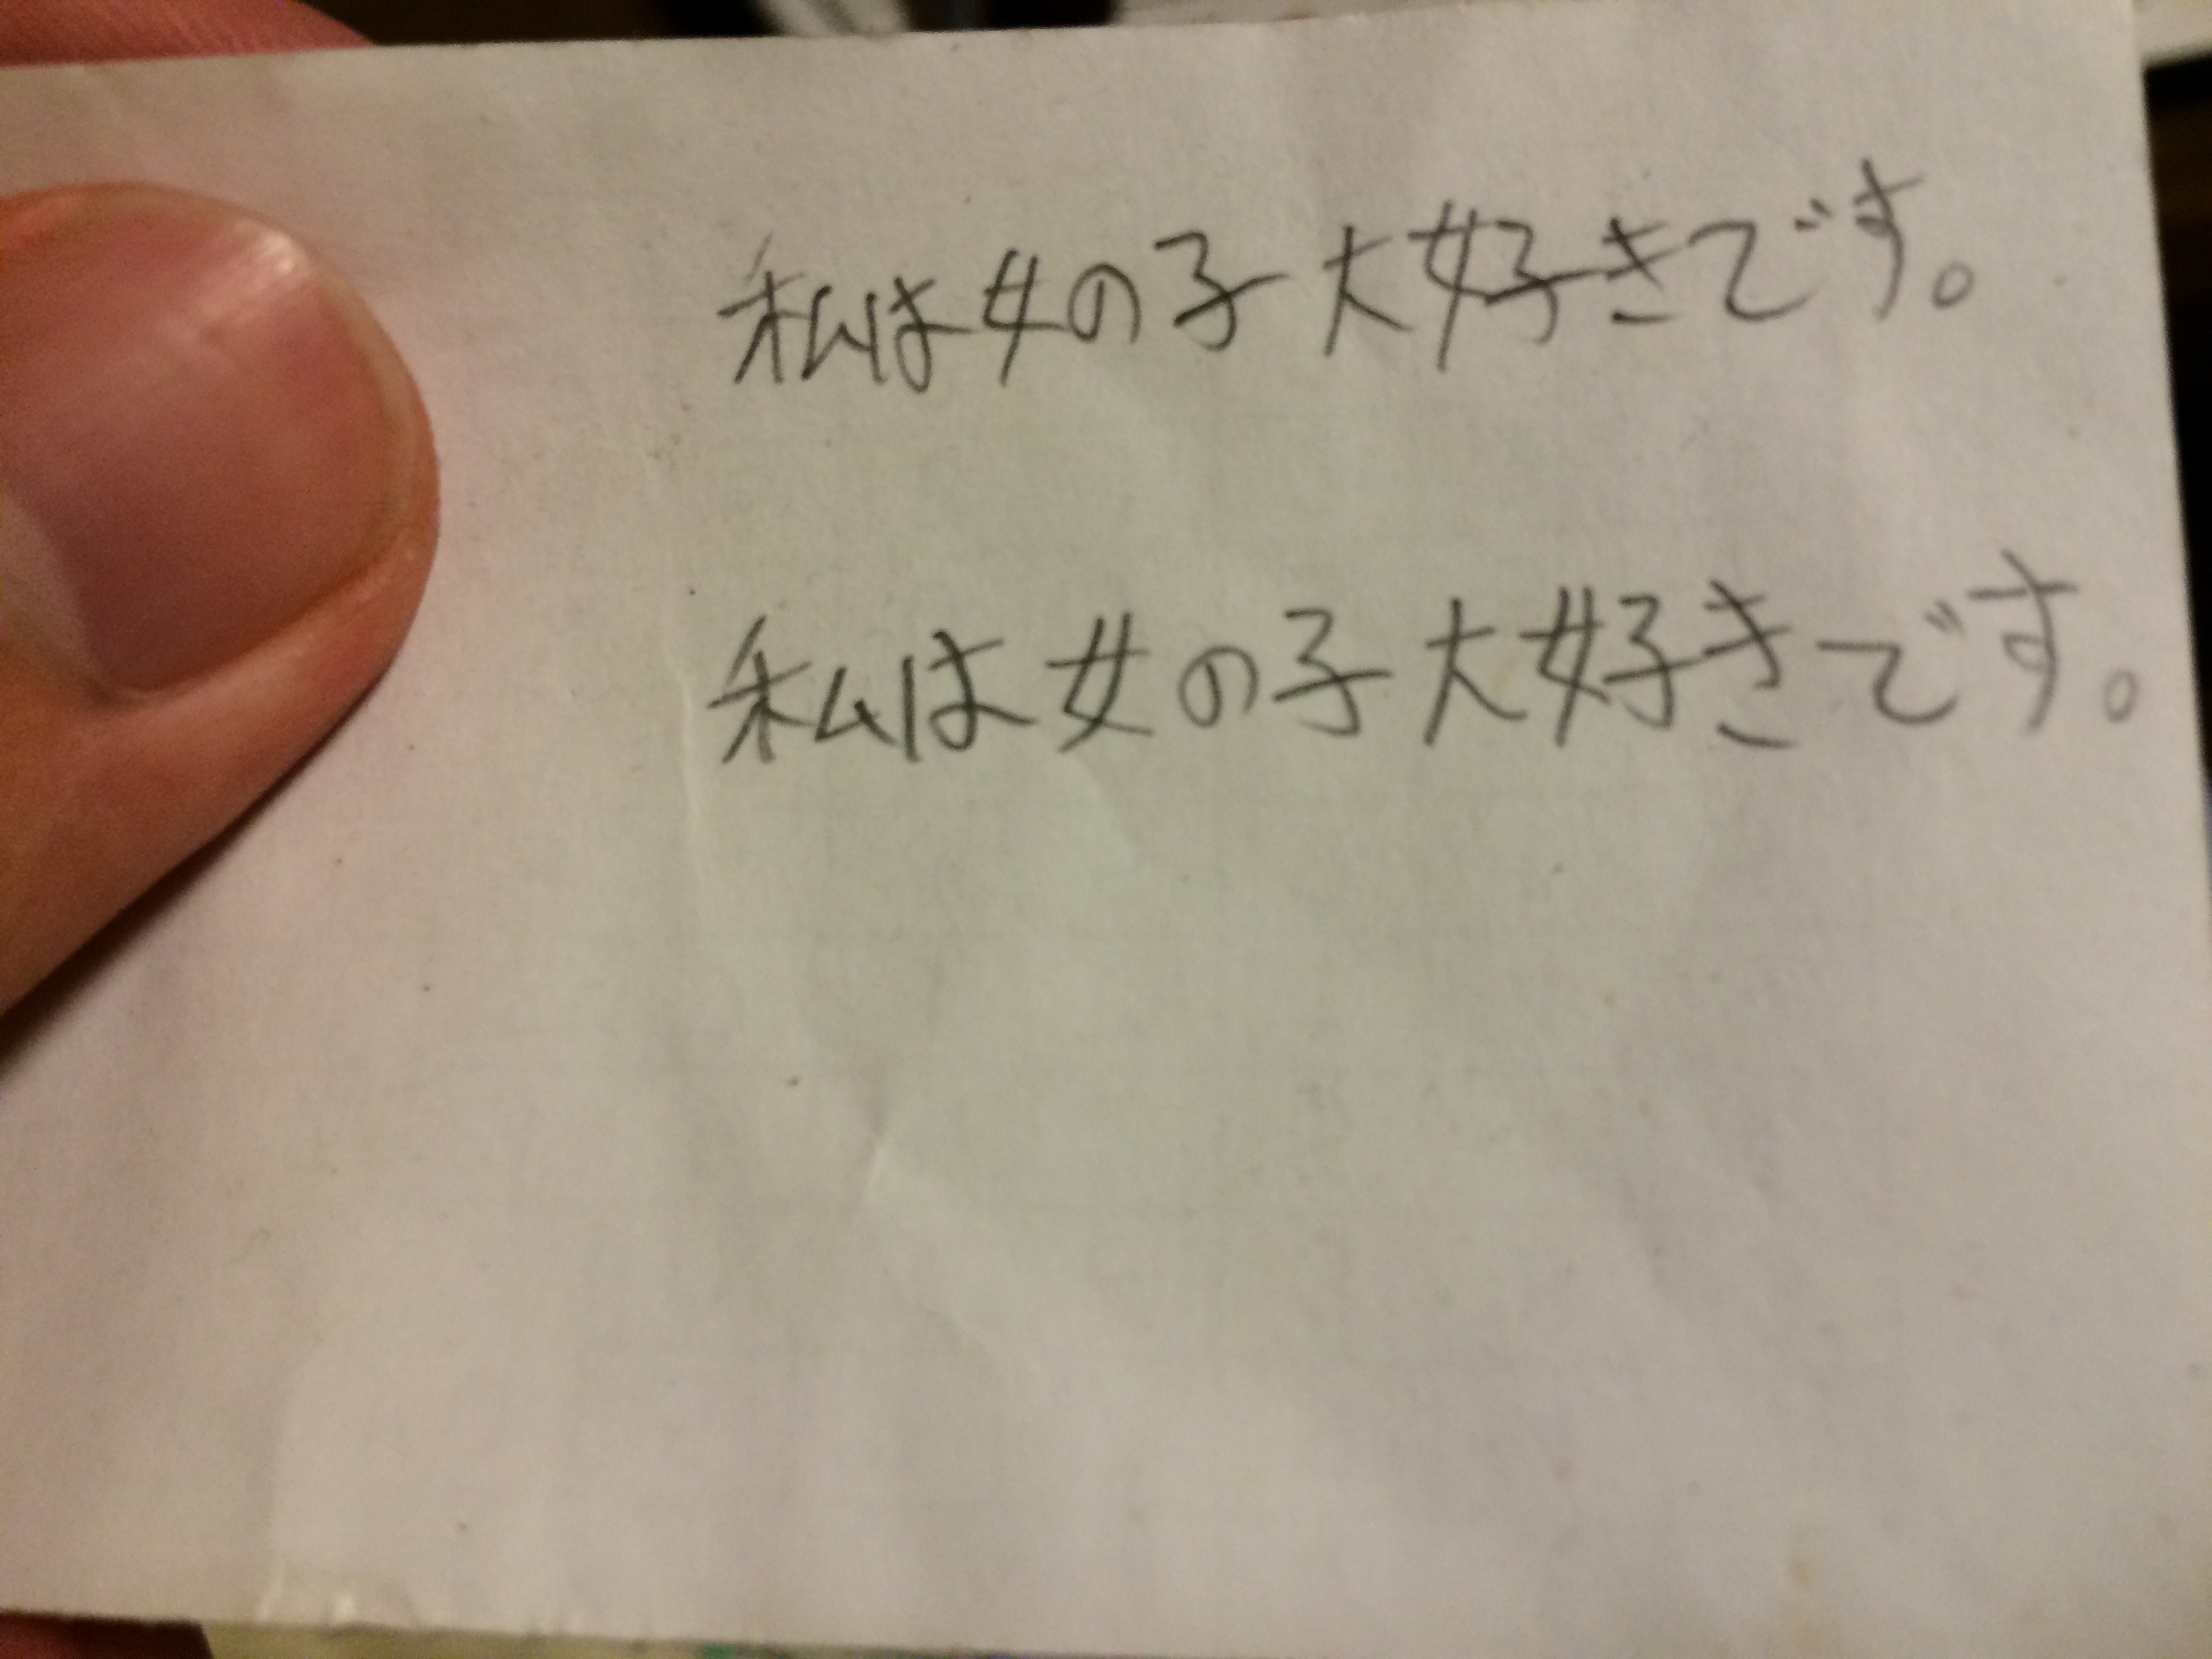 私は女の子大好きです。
私は女の子大好きです。